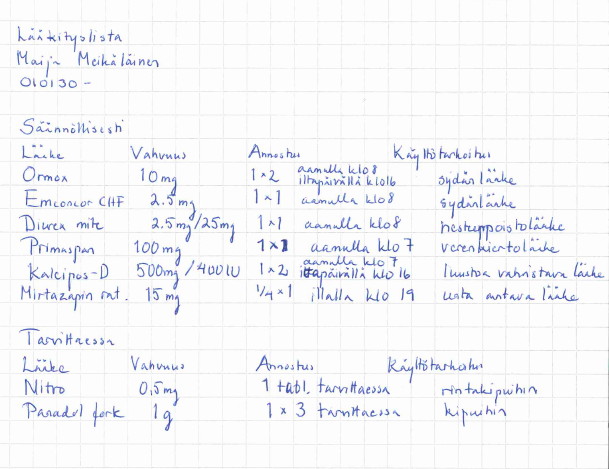 Lääkityslista
Maija Meikäläinen
010130-
Säännöllisesti
Lääke Vahvuus Annostus Käyttötarkoitus
Ormox 10mg 1x2 aamulla klo 8 iltapäivällä klo 16 sydänlääke
Emconcor CHF 2.5mg 1x1 aamulla klo 8 sydänlääke
Diurex mite 2.5mg/25mg 1x1 aamulla klo 8 nesteenpoistolääke
Primaspan 100mg 1x1 aamulla klo 7 verenkiertolääke
Kalcipos-D 500mg/400IU 1x2 aamulla klo 7 iltapäivällä klo 16 luustoa vahvistava lääke
Mirtazapin rat. 15mg 1/4x1 illalla klo 19 unta antava lääke
Tarvittaessa
Lääke Vahvuus Annostus Käyttötarkoitus
Nitro 0,5mg 1 tabl. tarvittaessa rintakipuihin
Panadol forte 1g 1x3 tarvittaessa kipuihin